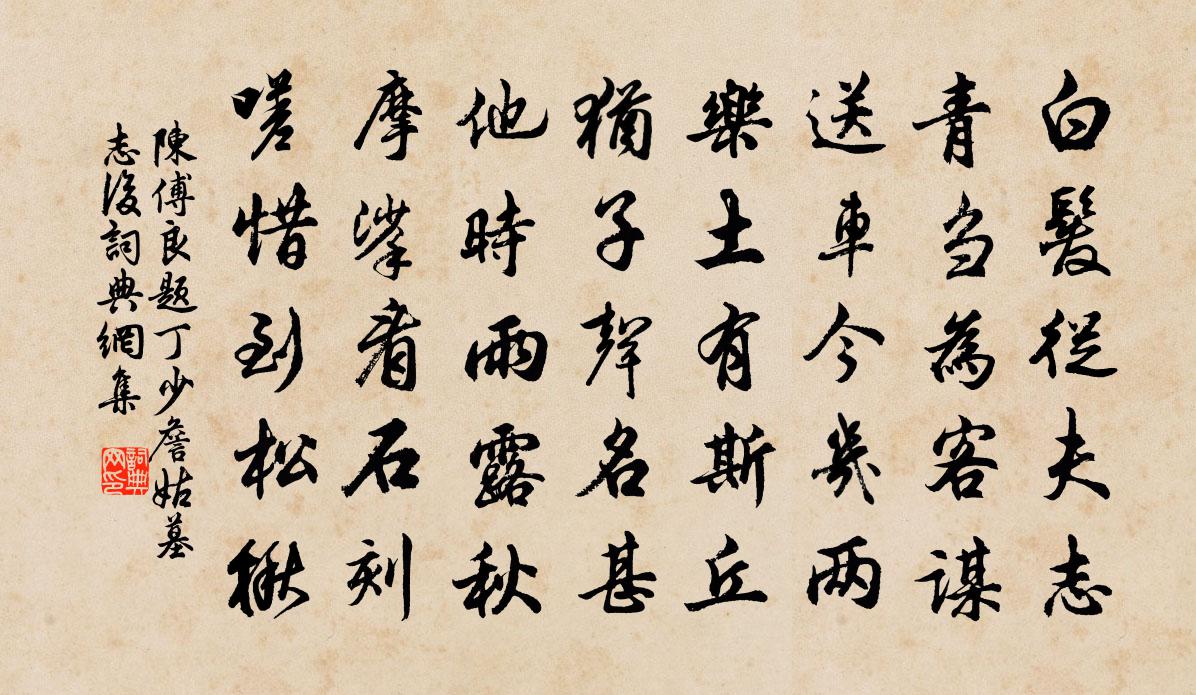 白髮從夫志
青刍為客謀
送車今幾两
樂土有斯丘
猶子聲名甚
他時雨露秋
摩挲看石刻
嗟惜到松楸
陳傅良題丁少詹姑墓
志後詞典網集
詞典
网印